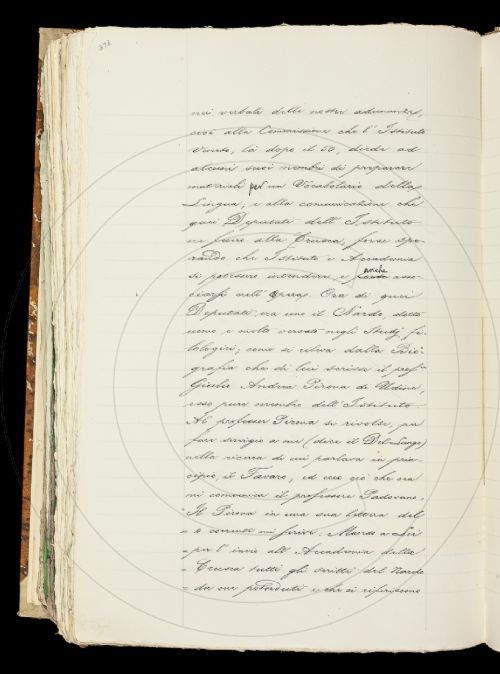 878
nei verbali delle nostre adunanze,
cioè alla Commissione che l'Istituto
Veneto, là dopo il 50, diede ad
alcuni suoi membri di preparare
materiali per un Vocabolario della
Lingua; e alla comunicazione che
quei Deputati dell'Istituto
ne fecero alla Crusca, forse spe-
rando che Istituto e Accademia
si potessero intendere e anche asso-
ciarsi nell'opera. Ora di quei
Deputati, era uno il Nardo, dotto
uomo e molto versato negli Studj fi-
lologici; come si rileva dalla Bio-
grafia che di lui scrisse il prof.
Giulio Andrea Pirona di Udine,
esso pure membro dell'Istituto.
Al professor Pirona si rivolse, per
fare servigio a me (dice il Del-Lungo)
nella ricerca di cui parlava in prin-
cipio, il Favaro, ed ecco ciò che ora
mi comunica il professore Padovano:
"Il Pirona in una sua lettera del
" 4 corrente mi scrive: Mando a Lei
" per l'invio all'Accademia della
" Crusca tutti gli scritti del Nardo
" da me posseduti e che si riferiscono